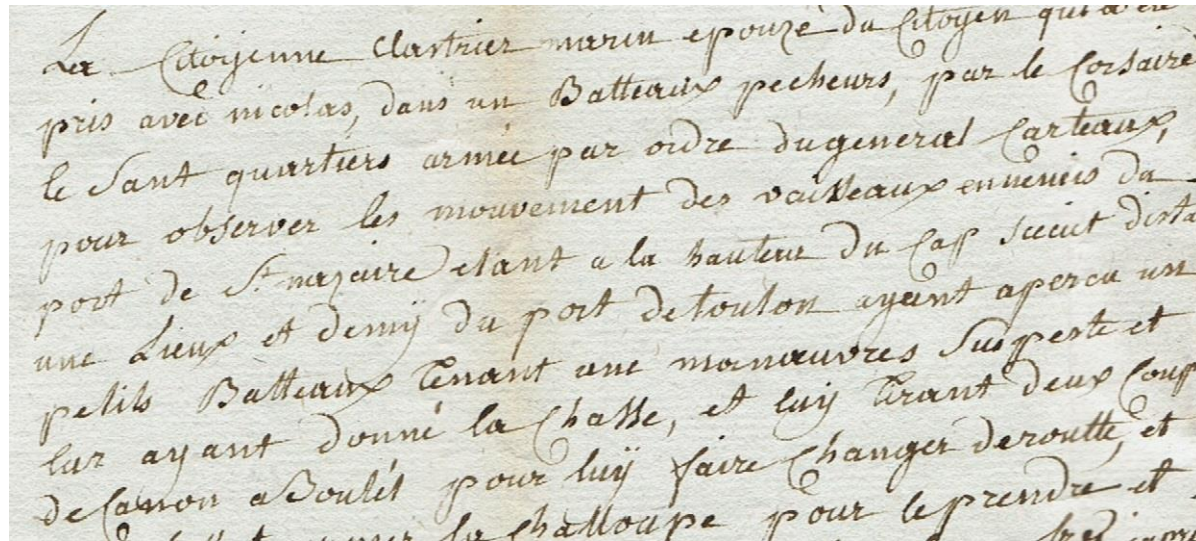 La Citoyenne Clastrier marin epouze du Citoyen qui a été
pris avec nicolas, dans un Batteaux pecheurs, par le Corsaire
le Sant quartiers armée par ordre du general Carteaux,
pour observer les mouvement des vaisseaux ennemis du
port de St. nazaire etant a la hauteur du Cap sicut dista
une Lieux et demy du port de toulon ayant apercu un
petits Batteaux tenant une manœuvres Suspecte et
lur ayant donné la Chasse, et luy tirant deux Coup
de Canon a Boulét pour luy faire Changer de routte, et
Challoupe pour le prendre et